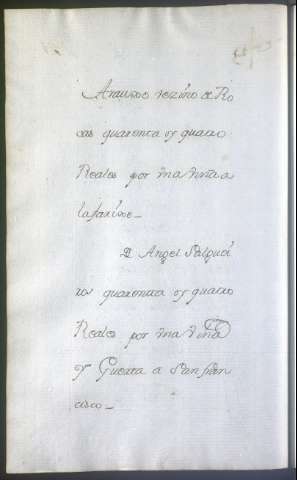 Arauxoe vezino de Ro
sas quarenta y quatro
Reales por vna viña a
la
D. Angel Salgua
quarenta y quatro
Reales por vna viña
y Guerta a San Fran
cisco